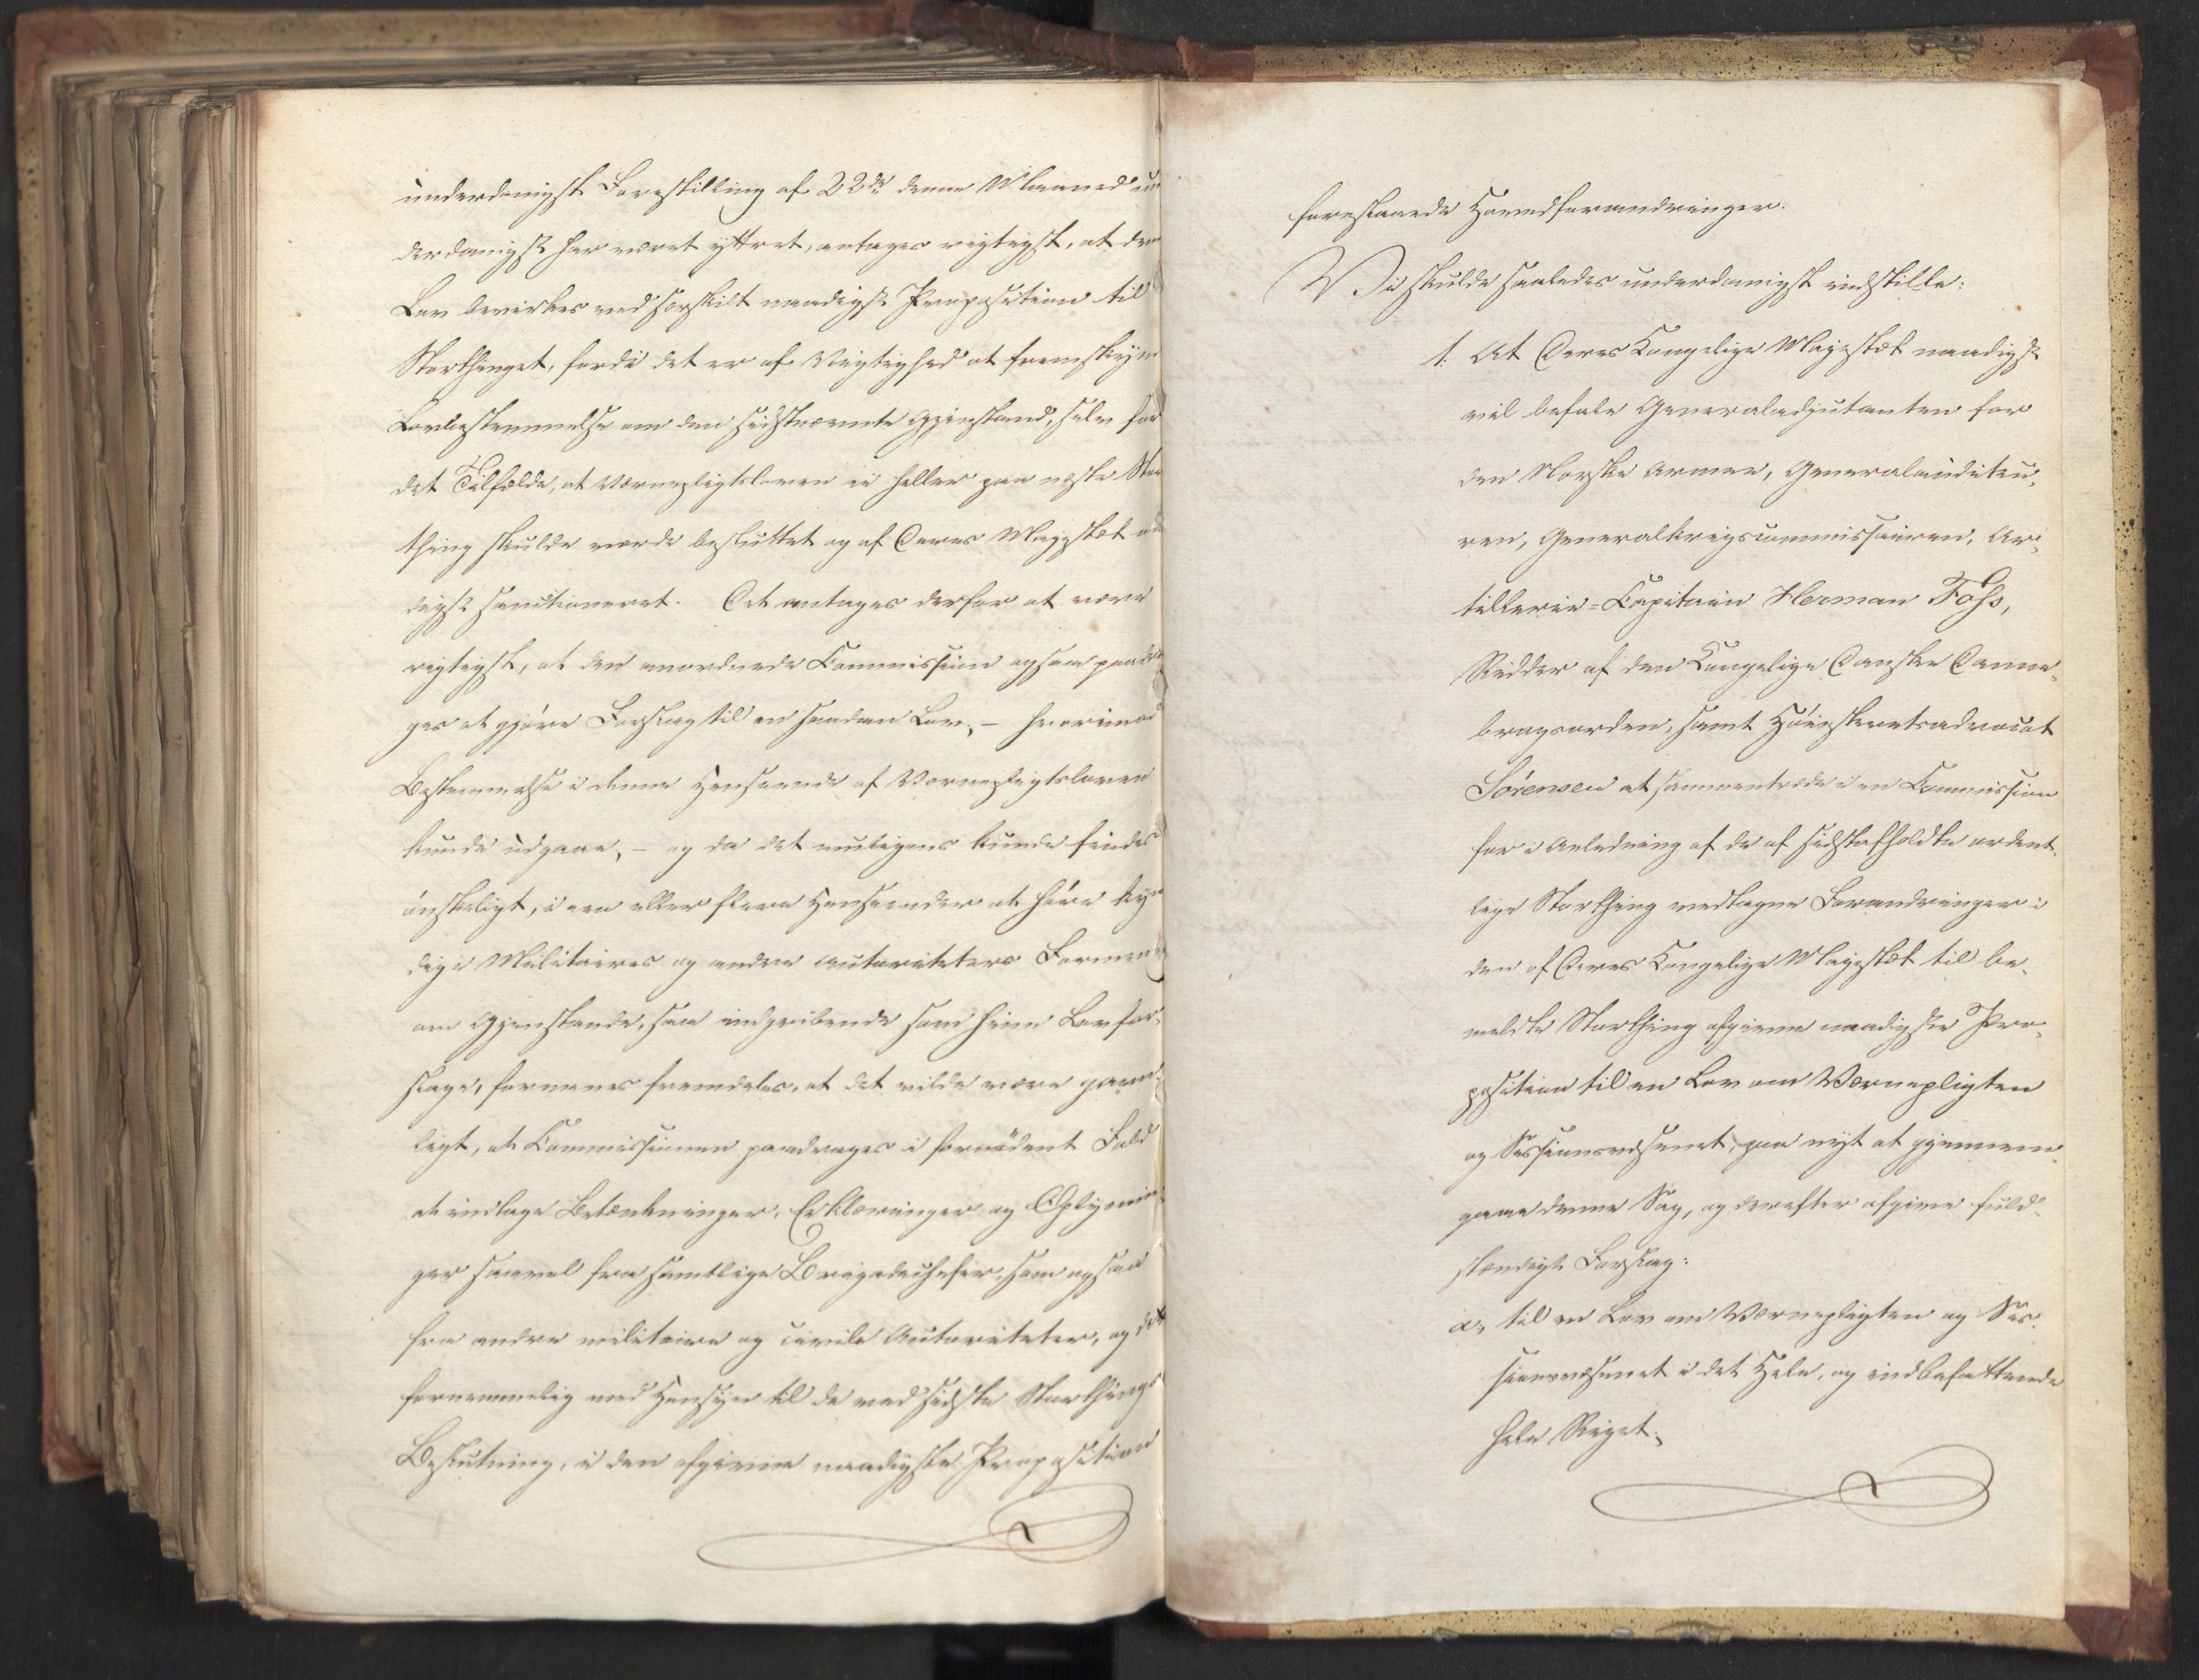 underdanigst Forestilling af 22de denne Maaned un
derdanigst har været yttret, antages rigtigst, at den
Lov bevirkes ved særskilt naadigst Proposition til
Storthinget, fordi det er af Vigtighed at fremskynde
Lovbestemmelse om den sidstnævnte Gjenstand, selv for
det Tilfælde, at Værnepligtsloven ei heller paa næste Stor
thing skulde vorde besluttet og af Deres Majestæt naa
digst sanctioneret. Det antages derfor at være
rigtigst, at den anordnede Commission ogsaa paadra
ges at gjøre Forslag til en saadan Lov, – hvorimod
Bestemmelse i denne Henseende af Værnepligtsloven
kunde udgaae, – og da det muligens kunde findes
ønskeligt, i een eller flere Henseender at høre kyn
dige Militaires og andre Autoriteters Formening
om Gjenstande, saa indgribende som hine Lovfor-
slage, formenes fremdeles, at det vilde være gavn-
ligt, at Commissionen paadrages i fornødent Fald
at indtage Betænkninger, Erklæringer og Oplysnin-
ger saavel fra samtlige Brigadechefer, som ogsaa
fra andre militaire og civile Autoriteter, og det
fornemmelig med Hensyn til de ved sidste Storthings
Beslutning, i den afgivne naadigste Proposition
foreslaaede Hovedforandringer.
Vi skulde saaledes underdanigst indstille:
1. At Deres Kongelige Majestæt naadigst
vil befale Generaladjutanten for
den Norske Armee, Generalauditeu-
ren, Generalkrigscommissairen, Ar-
tillerie-Capitain Herman Foss,
Ridder af den Kongelige Danske Danne-
brogsorden, samt Høiesteretsadvocat
Sørensen at sammentræde i en Commission
for i Anledning af de af sidstafholdte ordent-
lige Storthing vedtagne Forandringer i
den af Deres Kongelige Majestæt til be-
meldte Storthing afgivne naadigste Pro-
position til en Lov om Værnepligten
og Sessionsvæsenet, paa nyt at gjennem-
gaae denne Sag, og derefter afgive fuld-
stændigt Forslag:
a, til en Lov om Værnepligten og Ses-
sionsvæsenet i det Hele, og indbefattende
hele Riget,